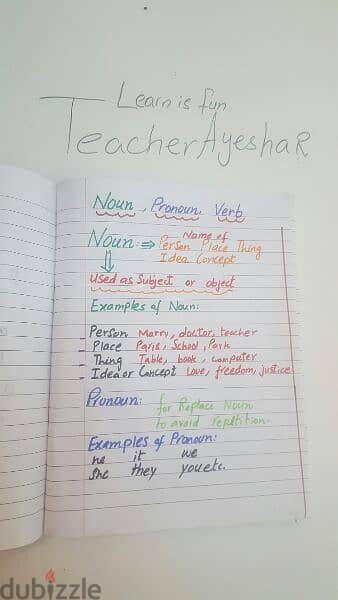 Learn is fun
TeacherAyeshaR
Noun, Pronoun, Verb
Noun: ⇒ Name of
Person Place Thing
Idea Concept
Used as Subject or object
Examples of Noun:
- Person Marry, doctor, teacher
- Place Paris, School, Park
- Thing Table, book, Computer
- Idea or Concept Love, freedom, justice
Pronoun: for Replace Noun
to avoid repitition.
Examples of Pronoun:
he it we
she they you etc.
dubizzle